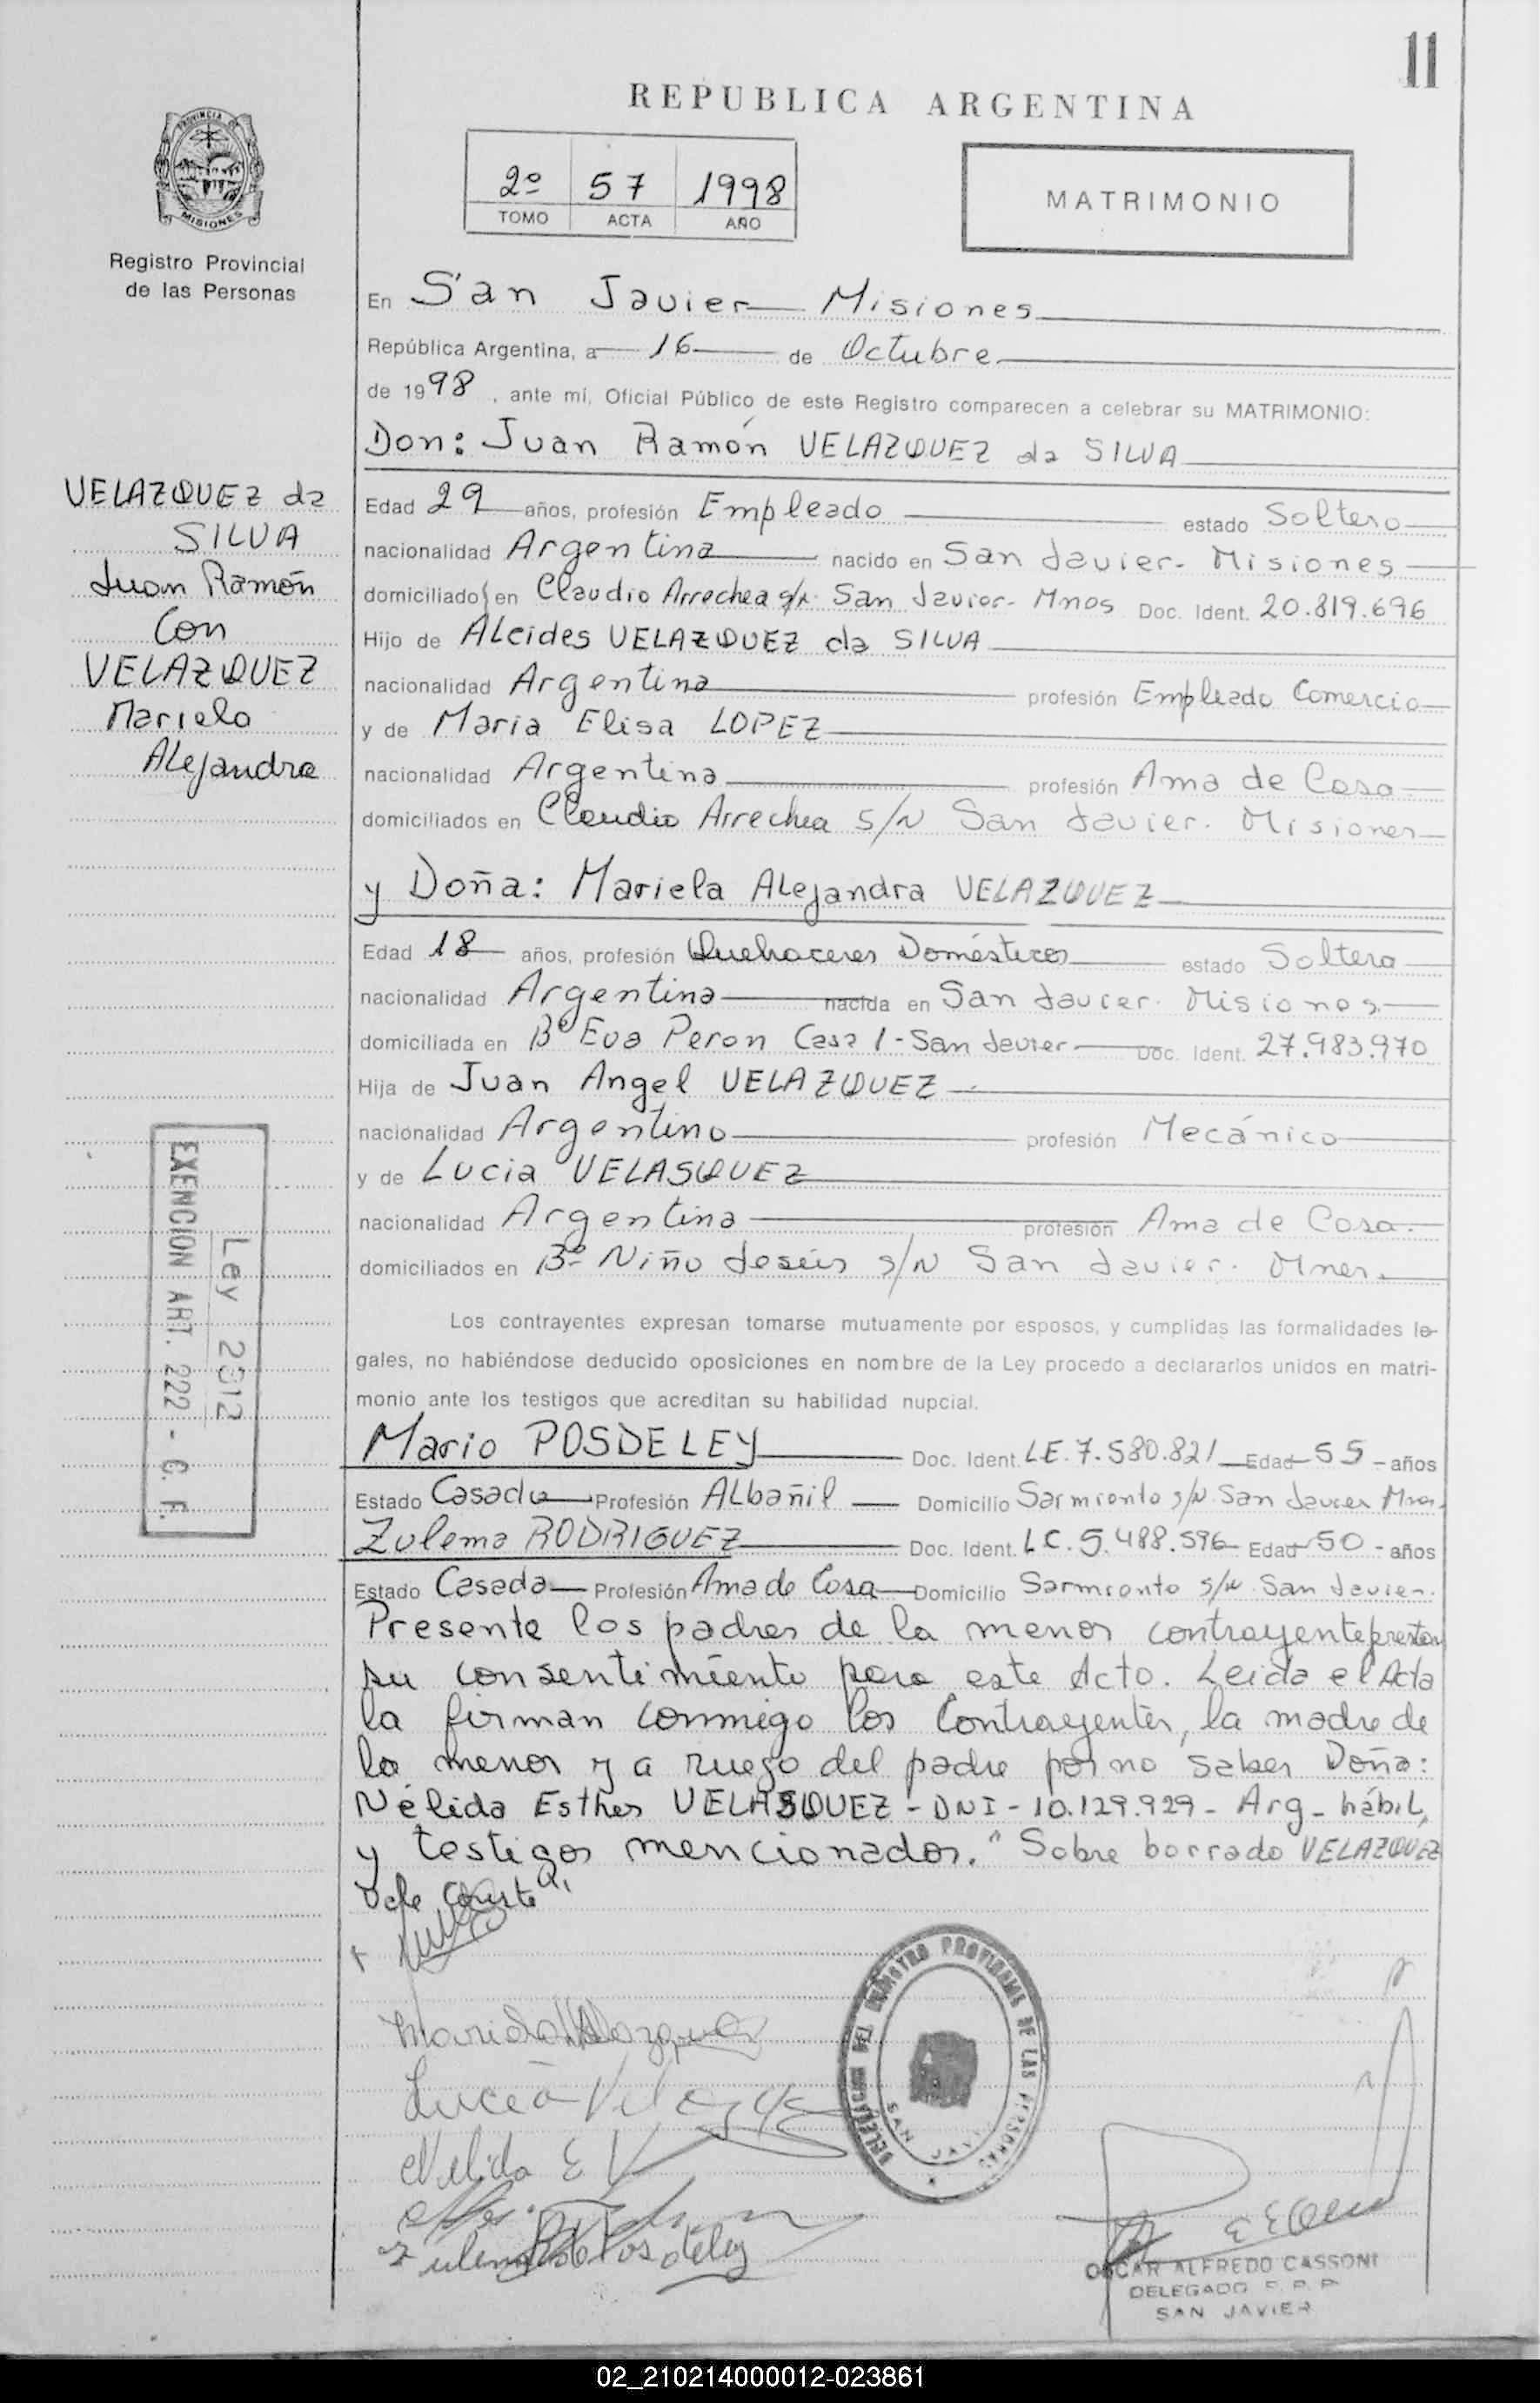 11
REPUBLICA ARGENTINA
PROVINCIA DE
MISIONES
Registro Provincial
de las Personas
2º 57 1998
TOMO ACTA AÑO
MATRIMONIO
En San Javier Misiones
República Argentina, a 16 de Octubre
de 1998, ante mí, Oficial Público de este Registro comparecen a celebrar su MATRIMONIO:
Don: Juan Ramón VELAZQUEZ da SILVA
VELAZQUEZ da
SILVA
Juan Ramón
Con
VELAZQUEZ
Mariela
Alejandra
Edad 29 años, profesión Empleado estado Soltero
nacionalidad Argentina nacido en San Javier- Misiones
domiciliado en Claudio Arrechea s/n. San Javier- Mnes Doc. Ident. 20.819.696
Hijo de Alcides VELAZQUEZ da SILVA
nacionalidad Argentina profesión Empleado Comercio
y de Maria Elisa LOPEZ
nacionalidad Argentina profesión Ama de Casa
domiciliados en Claudio Arrechea S/N San Javier. Misiones
y Doña: Mariela Alejandra VELAZQUEZ
Edad 18 años, profesión Quehaceres Domésticos estado Soltera
nacionalidad Argentina nacida en San Javier. Misiones
domiciliada en Bº Eva Peron Casa 1 - San Javier Doc. Ident. 27.983.970
Hija de Juan Angel VELAZQUEZ
nacionalidad Argentino profesión Mecánico
y de Lucia VELASQUEZ
nacionalidad Argentina profesión Ama de Casa.
domiciliados en Bº Niño Jesús s/N San Javier. Mnes.
Ley 2912
EXENCION ART. 222 - C. F.
Los contrayentes expresan tomarse mutuamente por esposos, y cumplidas las formalidades le-
gales, no habiéndose deducido oposiciones en nombre de la Ley procedo a declararlos unidos en matri-
monio ante los testigos que acreditan su habilidad nupcial.
Mario POSDELEY Doc. Ident. LE. 7.580.821 Edad 55 - años
Estado Casado Profesión Albañil Domicilio Sarmiento s/N. San Javier Mnes.
Zulema RODRIGUEZ Doc. Ident. L.C. 5.488.596 Edad 50 - años
Estado Casada Profesión Ama de Casa Domicilio Sarmiento s/N San Javier.
Presente los padres de la menor contrayente prestan
su consentimiento para este Acto. Leida el Acta
la firman conmigo los Contrayentes, la madre de
la menor y a ruego del padre por no saber Doña:
Nélida Esther VELASQUEZ - DNI - 10.129.929 - Arg - hábil,
y testigos mencionados. "Sobre borrado VELAZQUEZ
Vale Conste"
Mariela Velazquez
Lucia Velazquez
Nelida E V
Zulema Posdeley
DELEGACION DEL REGISTRO PROVINCIAL DE LAS PERSONAS
SAN JAVI
OSCAR ALFREDO CASSONI
DELEGADO R. P. P.
SAN JAVIER
02_210214000012-023861